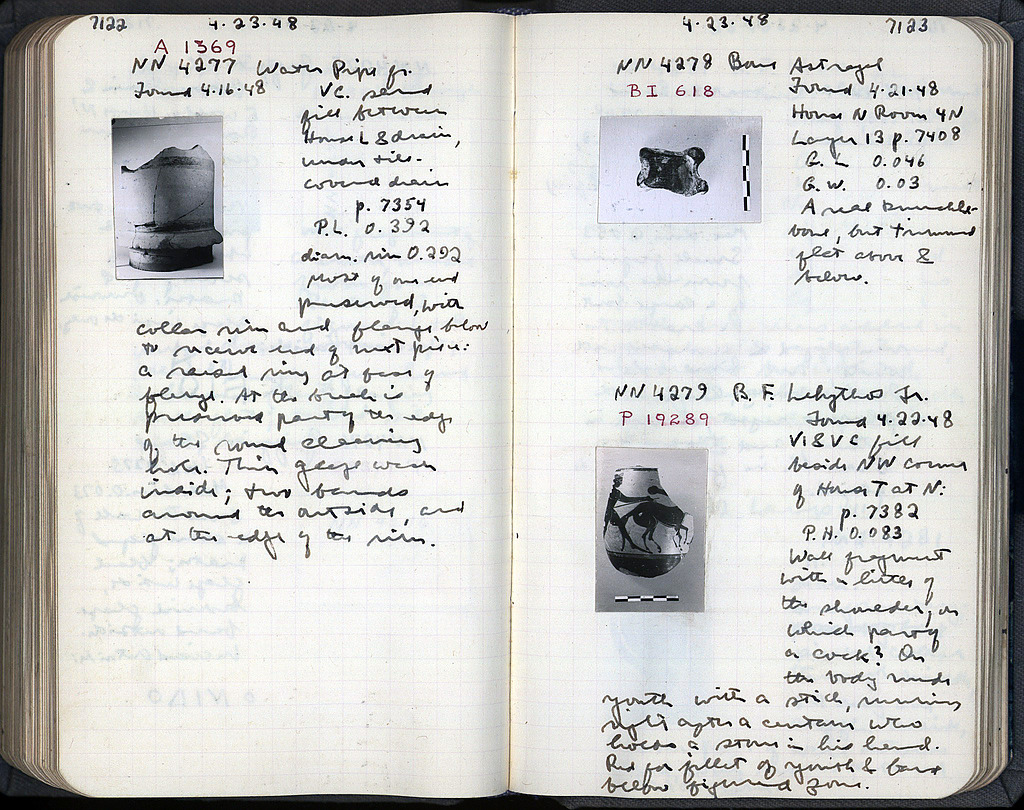 7122
4.23.48
A 1369
NN 4277 Water Pipe fr.
Found 4.16.48
VC. sand
fill between
House L & drain,
under tile-
covered drain
p. 7354
P.L. 0.392
diam. rim 0.292
Most of one end
preserved, with
collar rim and flange below
to receive end of next pipe:
a raised ring at base of
flange. At the break is
preserved part of the edge
of the round cleaning
hole. Thin glaze wash
inside; two bands
around the outside, and
at the edge of the rim.
4.23.48
7123
NN 4278 Bone Astragal
BI 618
Found 4.21.48
House N Room 4N
Layer 13 p. 7408
G. L. 0.046
G. W. 0.03
A real knuckle-
bone, but trimmed
flat above &
below.
NN 4279 B. F. Lekythos fr.
P 19289
Found 4.22.48
VI & VC fill
beside NW corner
of House T at N:
p. 7382
P. H. 0.083
Wall fragment
with a little of
the shoulder, on
which part of
a cock? On
the body nude
youth with a stick, running
right after a centaur who
holds a stone in his hand.
Red for fillet of youth & band
below figured zone.